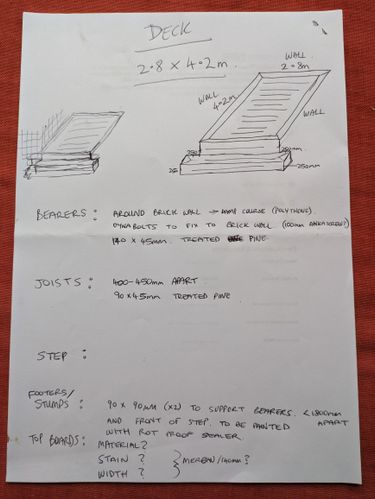 DECK
2.8 x 4.2m.
WALL
2.8m
WALL
4.2m
WALL
250mm
BEARERS: AROUND BRICK WALL → DAMP COURSE (POLYTHENE).
DYNABOLTS TO FIX TO BRICK WALL (100mm ANKASCREW?)
x 45mm TREATED PINE
JOISTS: 400-450mm APART
90 x 45mm TREATED PINE
STEP:
FOOTERS/
STUMPS: 90 x 90mm (x2) TO SUPPORT BEARERS. <1800mm
AND FRONT OF STEP. TO BE PAINTED APART
WITH ROT PROOF SEALER.
TOP BOARDS: MATERIAL?
STAIN ? } MERBAU/140mm?
WIDTH ?